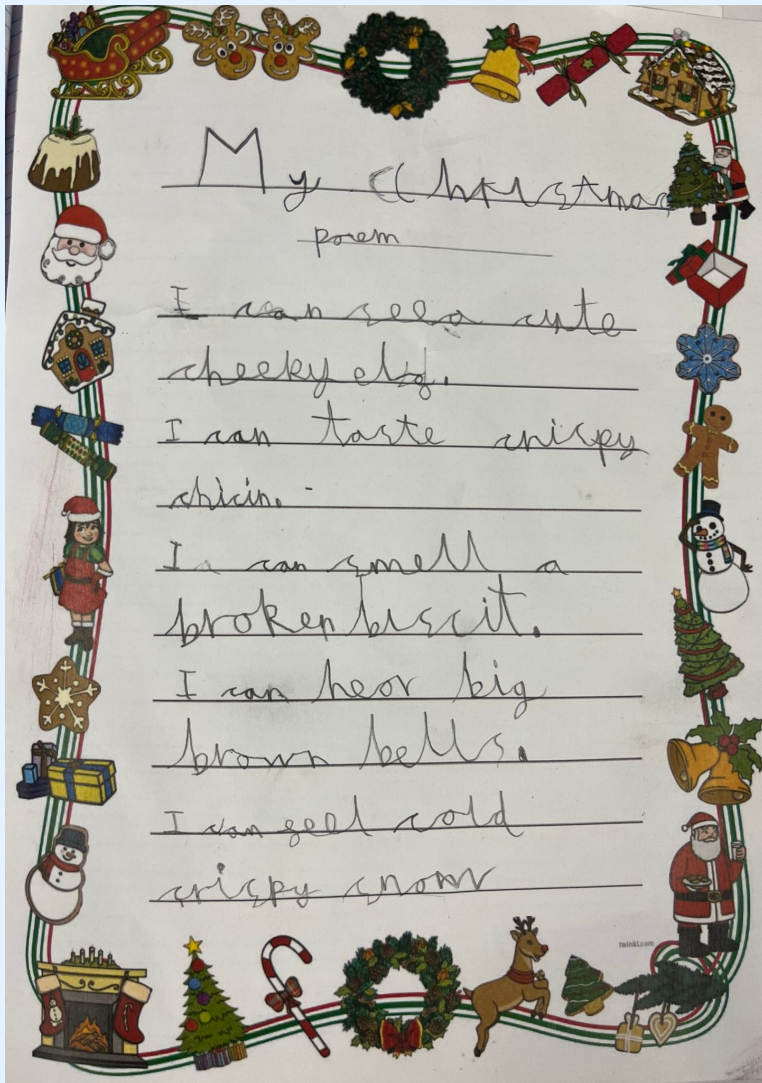 My Christmas
poem
I can see a cute
cheeky elf.
I can taste crispy
chicin.
I can smell a
broken biscit.
I can hear big
brown bells.
I can feel cold
crispy snow
twinkl.com